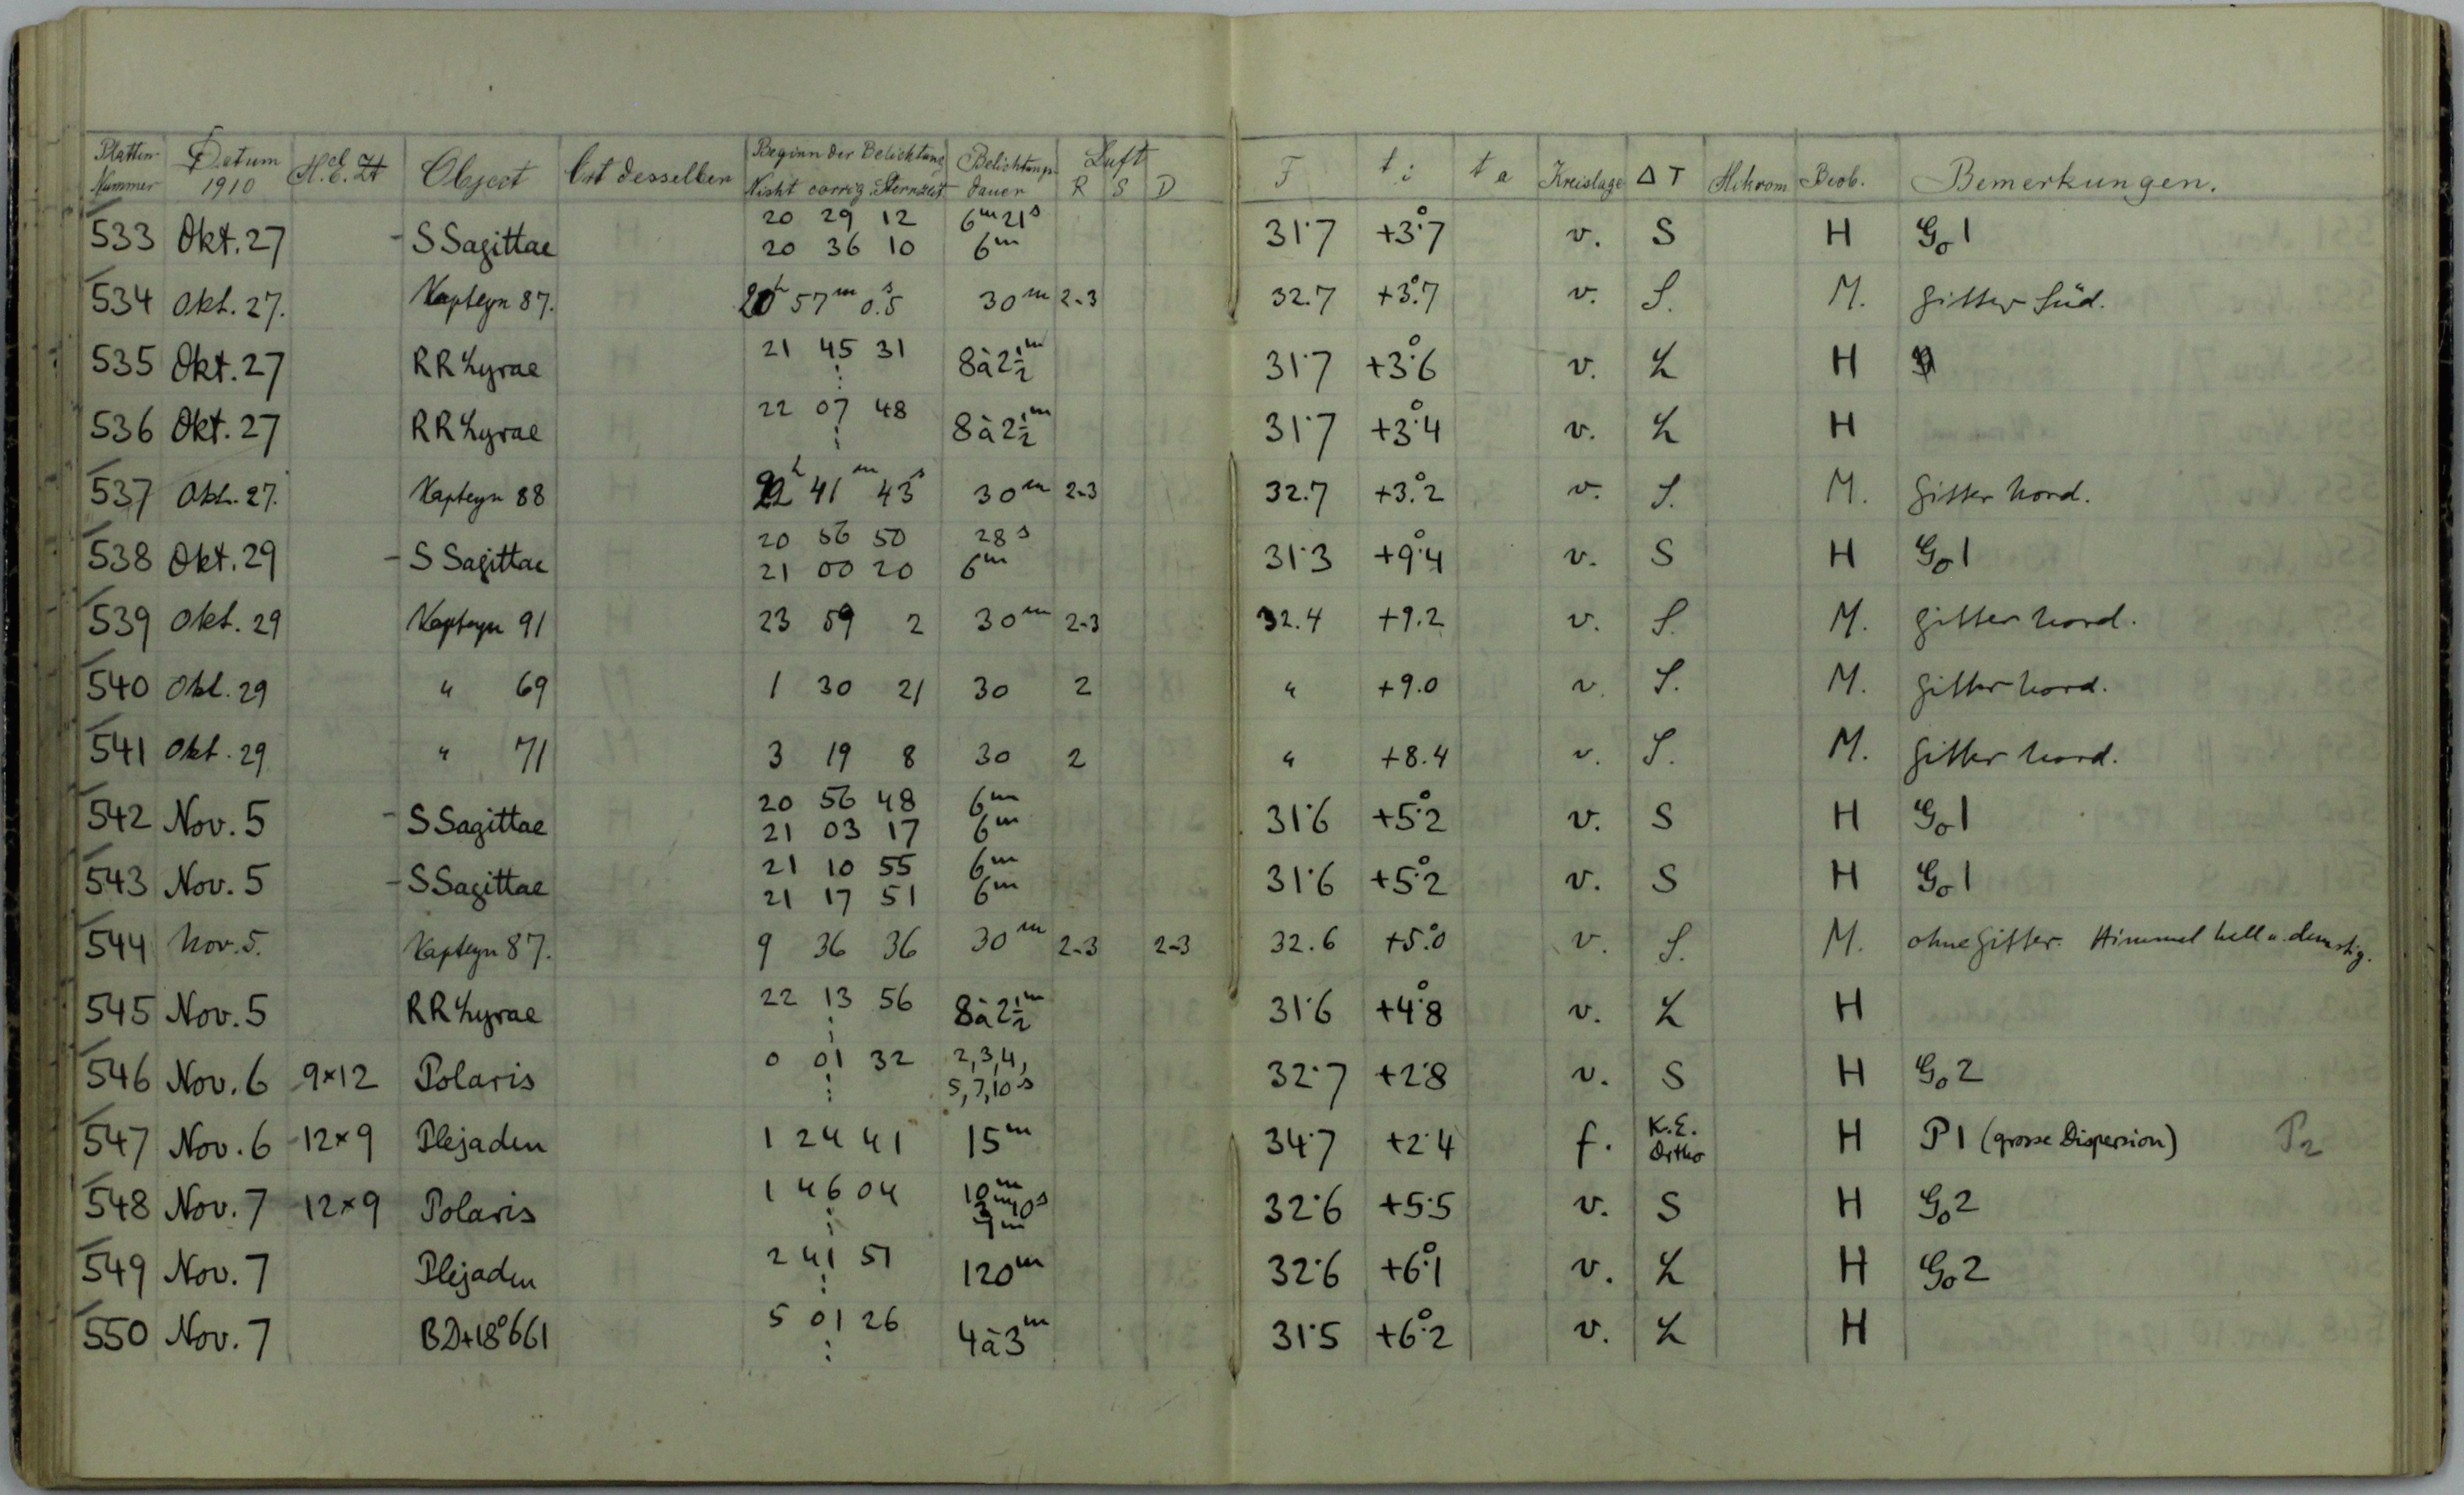 Platten- Datum Object Ort desselben Beginn der Belichtung Belichtungs- Luft F t i t a Kreislage Δ T Beob. Bemerkungen.
Nummer 1910 Nicht corrig. Sternzeit dauer R S D
533 Okt. 27 - S Sagittae 20 29 12 6m 21s 31.7 +3°.7 v. S H Go 1
20 36 10 6m
534 Okt. 27. Kapteyn 87. 20h 57m 0.5s 30m 2-3 32.7 +3°.7 v. S. M. Gitter Süd.
535 Okt. 27 RR Lyrae 21 45 31 8 à 2½m 31.7 +3°.6 v. L H
⋮
536 Okt. 27 RR Lyrae 22 07 48 8 à 2½m 31.7 +3°.4 v. L H
⋮
537 Okt. 27. Kapteyn 88 22h 41m 43s 30m 2-3 32.7 +3°.2 v. S. M. Gitter Nord.
538 Okt. 29 - S Sagittae 20 56 50 28s 31.3 +9°.4 v. S H Go 1
21 00 20 6m
539 Okt. 29 Kapteyn 91 23 59 2 30m 2-3 32.4 +9.2 v. S. M. Gitter Nord.
540 Okt. 29 " 69 1 30 21 30 2 " +9.0 v. S. M. Gitter Nord.
541 Okt. 29 " 71 3 19 8 30 2 " +8.4 v. S. M. Gitter Nord.
542 Nov. 5 - S Sagittae 20 56 48 6m 31.6 +5°.2 v. S H Go 1
21 03 17 6m
543 Nov. 5 - S Sagittae 21 10 55 6m 31.6 +5°.2 v. S H Go 1
21 17 51 6m
544 Nov. 5. Kapteyn 87. 9 36 36 30m 2-3 2-3 32.6 +5°.0 v. S. M. ohne Gitter. Himmel hell u. dunstig.
545 Nov. 5 RR Lyrae 22 13 56 8 à 2½m 31.6 +4°.8 v. L H
⋮
546 Nov. 6 9×12 Polaris 0 01 32 2,3,4, 32.7 +2.8 v. S H Go 2
⋮ 5,7,10s
547 Nov. 6 12×9 Plejaden 1 24 41 15m 34.7 +2.4 f. K.E. H P1 (grosse Dispersion) P2
Ortho
548 Nov. 7 12×9 Polaris 1 46 04 10m 32.6 +5.5 v. S H Go 2
⋮
549 Nov. 7 Plejaden 2 41 51 120m 32.6 +6°.1 v. L H Go 2
⋮
550 Nov. 7 BD+18°661 5 01 26 4 à 3m 31.5 +6°.2 v. L H
⋮